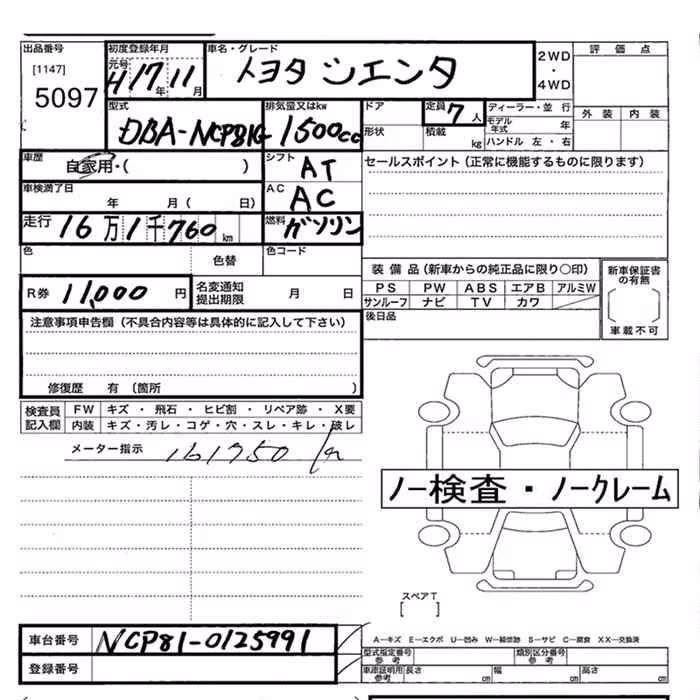 出品番号 初度登録年月 車名・グレード 2WD・4WD 評価点
[1147] 元号 H17年11月 トヨタ シエンタ
5097
型式 排気量又はkw ドア 定員 7人 ディーラー・並行 外装 内装
DBA-NCP81G 1500cc 形状 積載 kg モデル年式 年 ハンドル 左・右
車歴 自家用・( ) シフト AT セールスポイント(正常に機能するものに限ります)
車検満了日 年 月( 日) AC AC
走行 16万1千760km 燃料 ガソリン
色 色替 色コード
装備品(新車からの純正品に限り○印) 新車保証書の有無
R券 11,000円 名変通知提出期限 月 日 PS PW ABS エアB アルミW
サンルーフ ナビ TV カワ
注意事項申告欄(不具合内容等は具体的に記入して下さい) 後日品 車載不可
修復歴 有(箇所 )
検査員記入欄 FW キズ・飛石・ヒビ割・リペア跡・X要
内装 キズ・汚レ・コゲ・穴・スレ・キレ・破レ
メーター指示 161750 km
ノー検査・ノークレーム
スペアT
[ ]
車台番号 NCP81-0125991 A—キズ E—エクボ U—凹み W—補修跡 S—サビ C—腐食 XX—交換済
登録番号 型式指定番号 参考 類別区分番号 参考
車庫証明用 参考 長さ cm 幅 cm 高さ cm